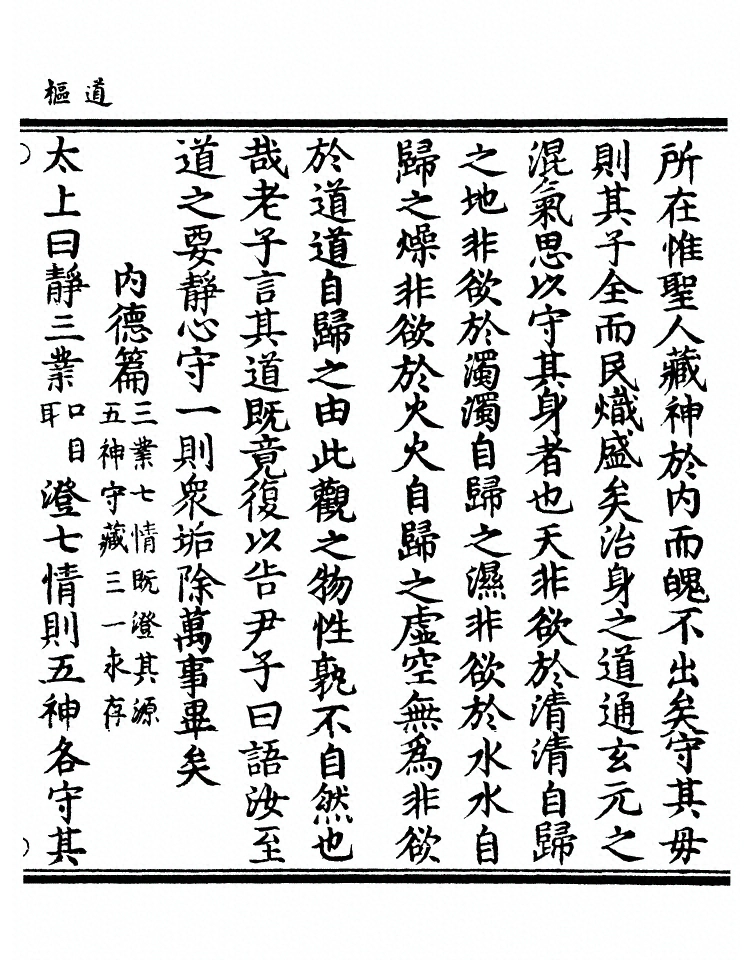 道樞
所在惟聖人藏神於内而魄不出矣守其母
則其子全而民熾盛矣治身之道通玄元之
混氣思以守其身者也天非欲於清清自歸
之地非欲於濁濁自歸之濕非欲於水水自
歸之燥非欲於火火自歸之虛空無為非欲
於道道自歸之由此觀之物性孰不自然也
哉老子言其道既竟復以告尹子曰語汝至
道之要靜心守一則衆垢除萬事畢矣
内德篇三業七情既澄其源五神守藏三一永存
太上曰靜三業口目耳澄七情則五神各守其